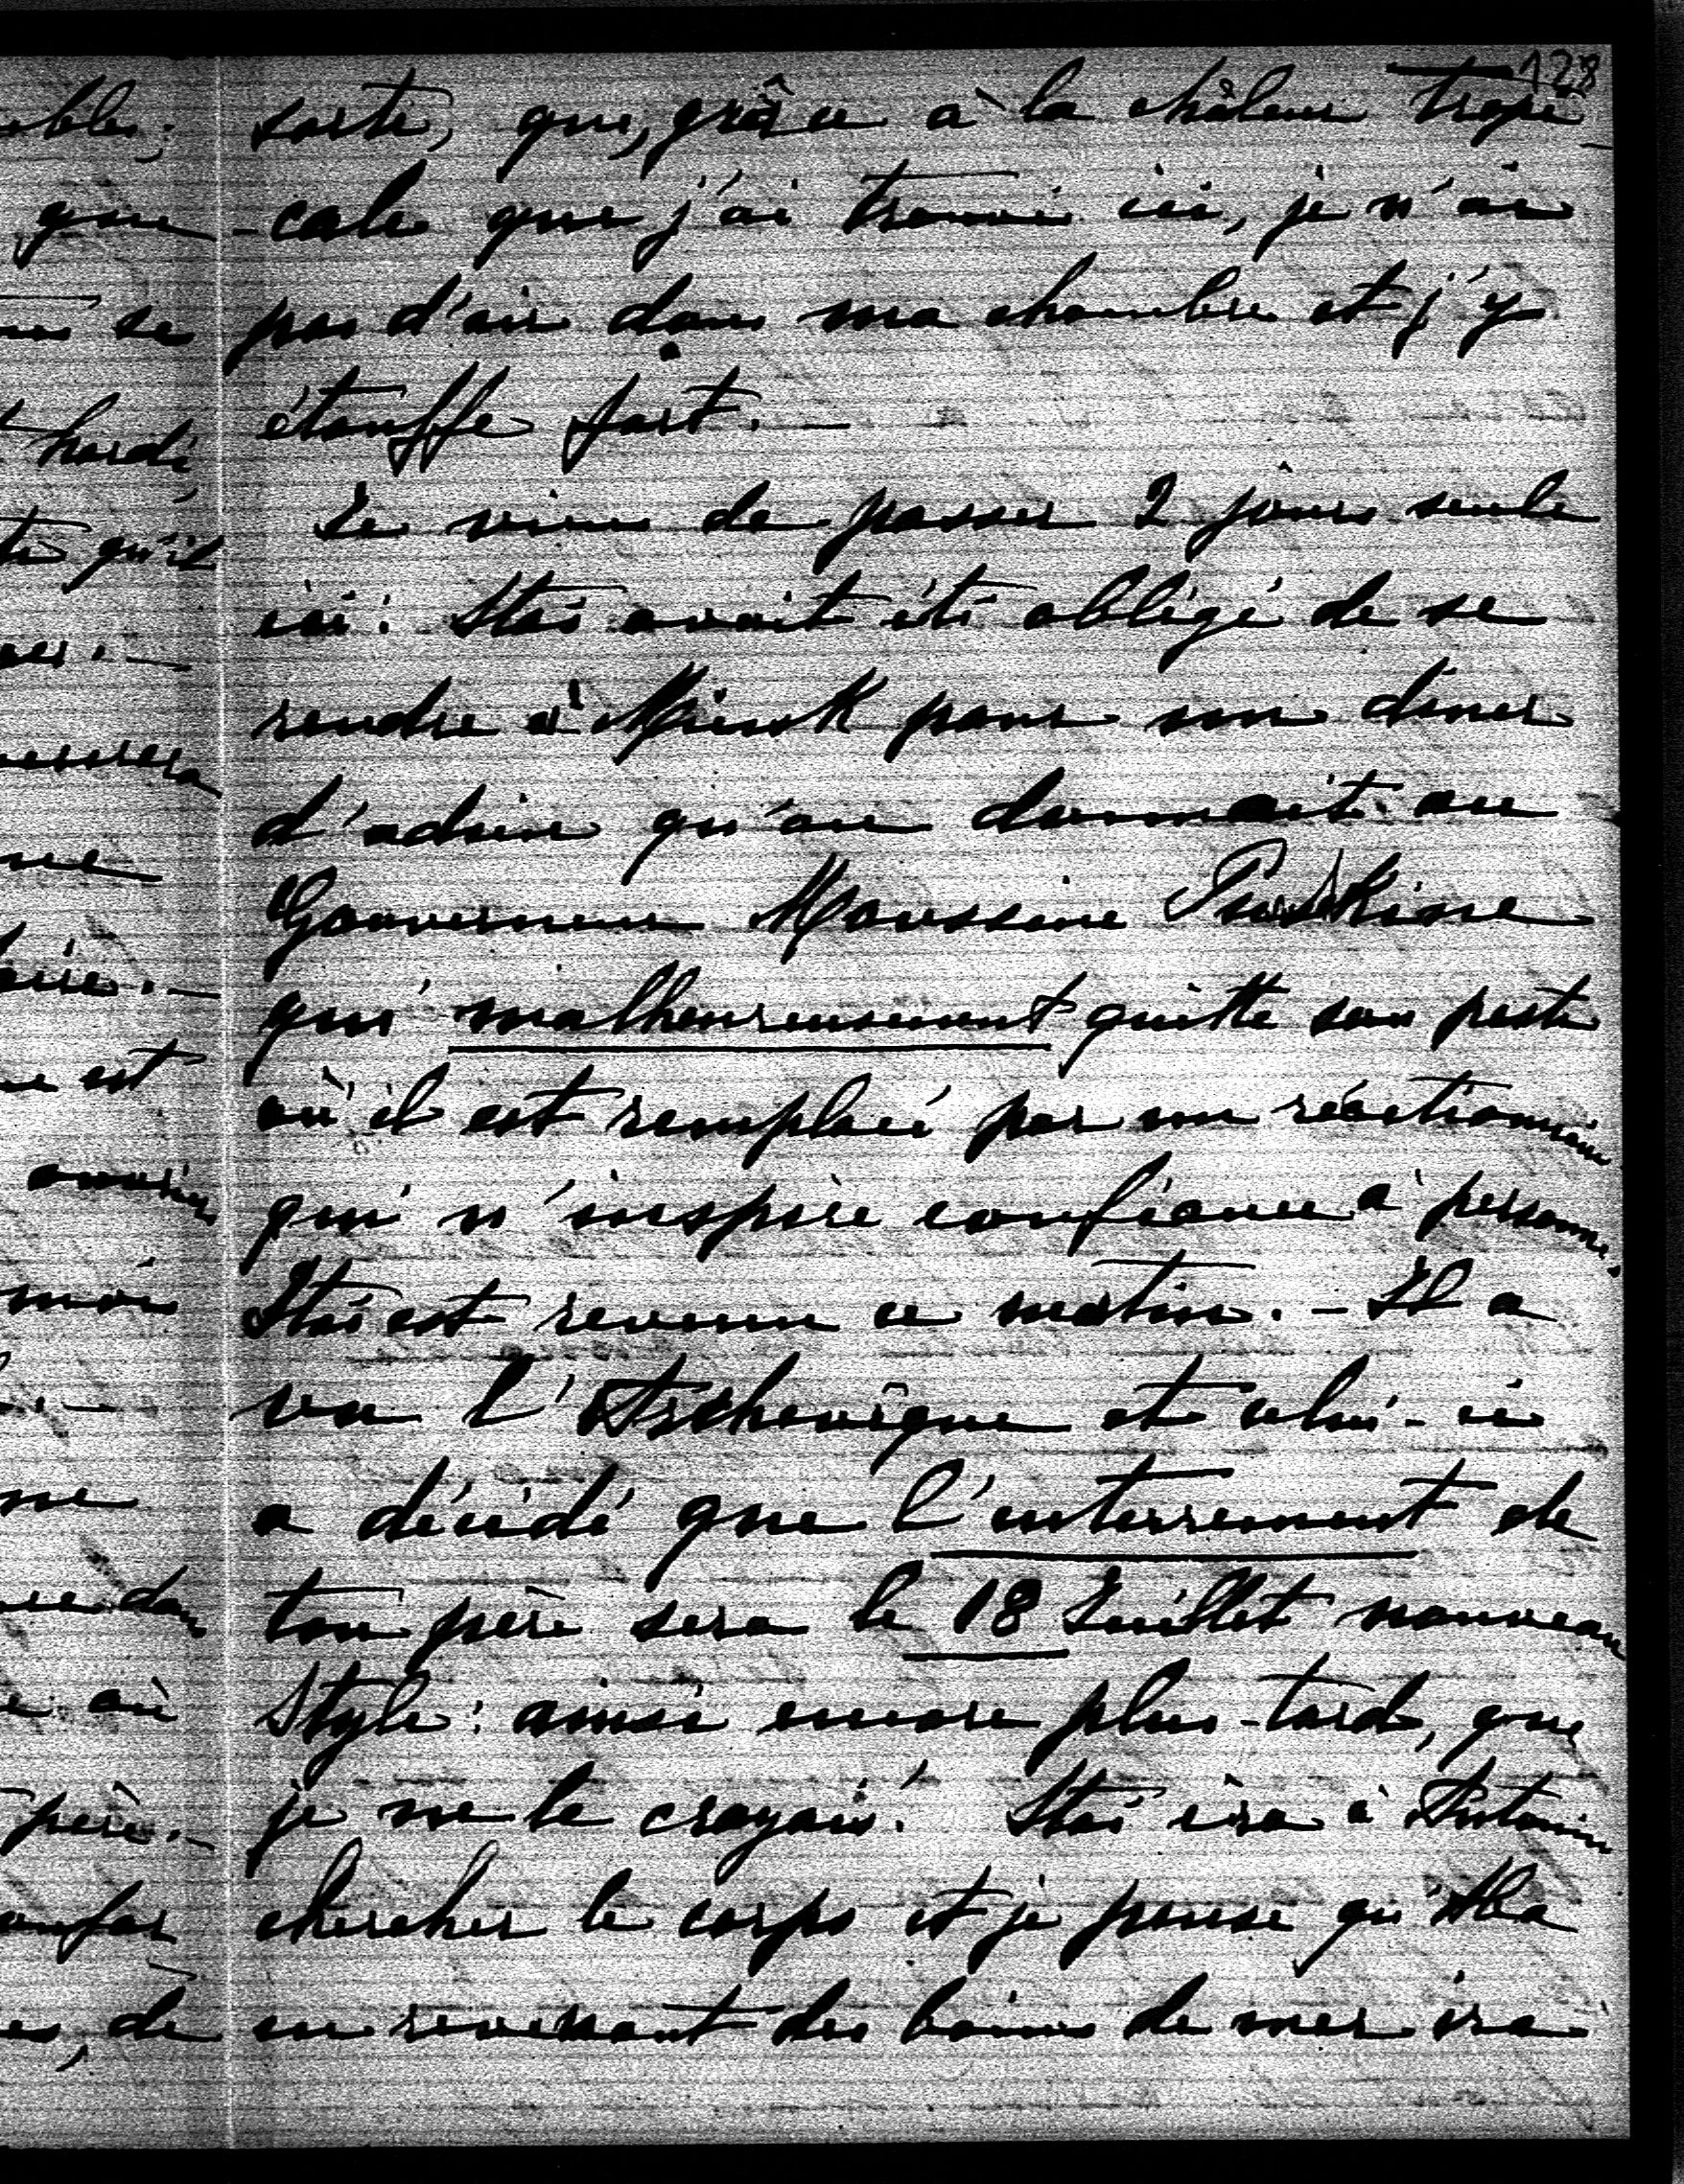 128
sorte, que, grâce à la châleur tropi-
-cale que j'ai trouvé ici, je n'ai
pas d'air dans ma chambre et j'y
étouffe fort. —
Je viens de passer 2 jours seule
ici: Staś avait été obligé de se
rendre à Minsk pour un diner
d'adieu qu'on donnait au
Gouverneur Moussine Puskine
qui malheureusement quitte son poste
où il est remplacé par un réactionnaire
qui n'inspire confiance à personne.
Staś est revenu ce matin. — Il a
vu l'Archevêque et celui-ci
a décidé que l'enterrement de
ton père sera le 18 Juillet nouveau
Style: ainsi encore plus-tard, que
je ne le croyais! Staś ira à Antonin
chercher le corps et je pense qu'
en revenant des bains de mer ira
que
se
hardi
qu'il
me
est
moi
où
père. —
de